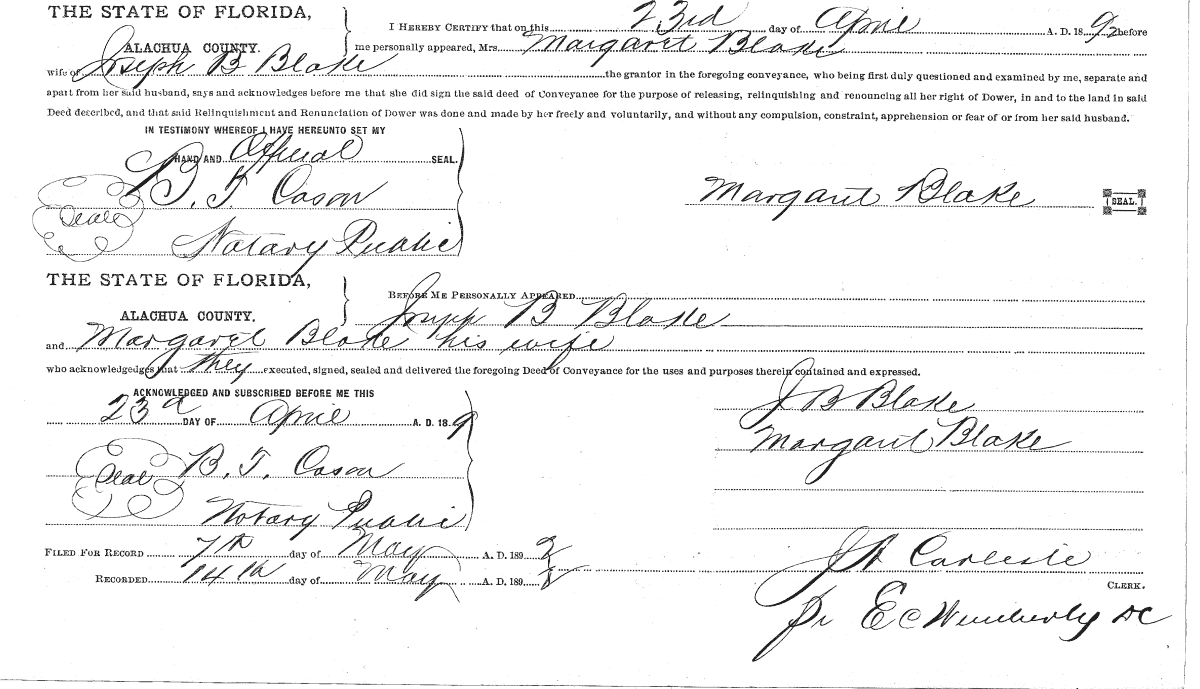 THE STATE OF FLORIDA,
I HEREBY CERTIFY that on this 23rd day of April A. D. 1892 before
ALACHUA COUNTY.
me personally appeared, Mrs. Margaret Blake
wife of Joseph B Blake the grantor in the foregoing conveyance, who being first duly questioned and examined by me, separate and
apart from her said husband, says and acknowledges before me that she did sign the said deed of Conveyance for the purpose of releasing, relinquishing and renouncing all her right of Dower, in and to the land in said
Deed described, and that said Relinquishment and Renunciation of Dower was done and made by her freely and voluntarily, and without any compulsion, constraint, apprehension or fear of or from her said husband.
IN TESTIMONY WHEREOF I HAVE HEREUNTO SET MY
HAND AND Official SEAL.
B. T. Cason
Seal
Margaret Blake SEAL.
Notary Public
THE STATE OF FLORIDA,
BEFORE ME PERSONALLY APPEARED
ALACHUA COUNTY.
Joseph B Blake
and Margaret Blake his wife
who acknowledges that they executed, signed, sealed and delivered the foregoing Deed of Conveyance for the uses and purposes therein contained and expressed.
ACKNOWLEDGED AND SUBSCRIBED BEFORE ME THIS
J B Blake
23d DAY OF April A. D. 189
Margaret Blake
Seal B. T. Cason
Notary Public
FILED FOR RECORD 7th day of May A. D. 1892
J A Carlisle
RECORDED 14th day of May A. D. 189
CLERK.
Pr E C Wimberly DC